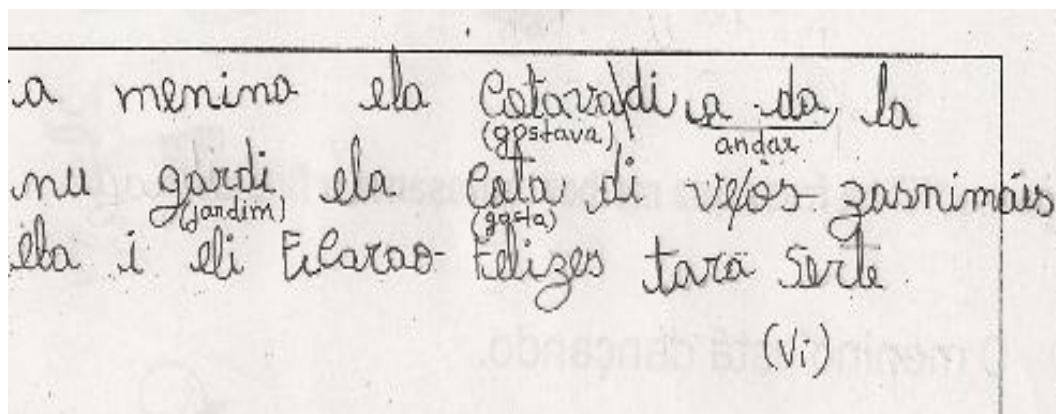 a menina ela Cotava di a da la
(gostava) andar
nu gardi ela Cota di ve os zasnimáis
(jardim) (gosta)
ela i eli Ficarao Felizes tara Serte
(Vi)
O menino está dançando.